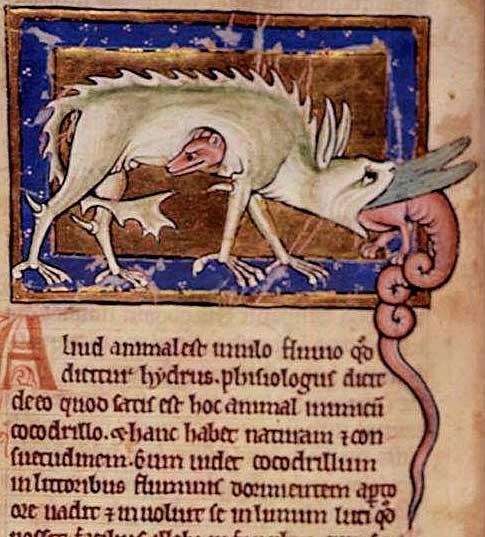 Aliud animal est in nilo fluuio qđ
dicitur hydrus. phisiologus dicit
de eo quod satis est hoc animal inimicū
cocodrillo. & hanc habet naturam ⁊ con
suetudinem. Cum uidet cocodrillum
in littoribus fluminis dormientem apto
ore uadit ⁊ inuoluit se in limum luti qo